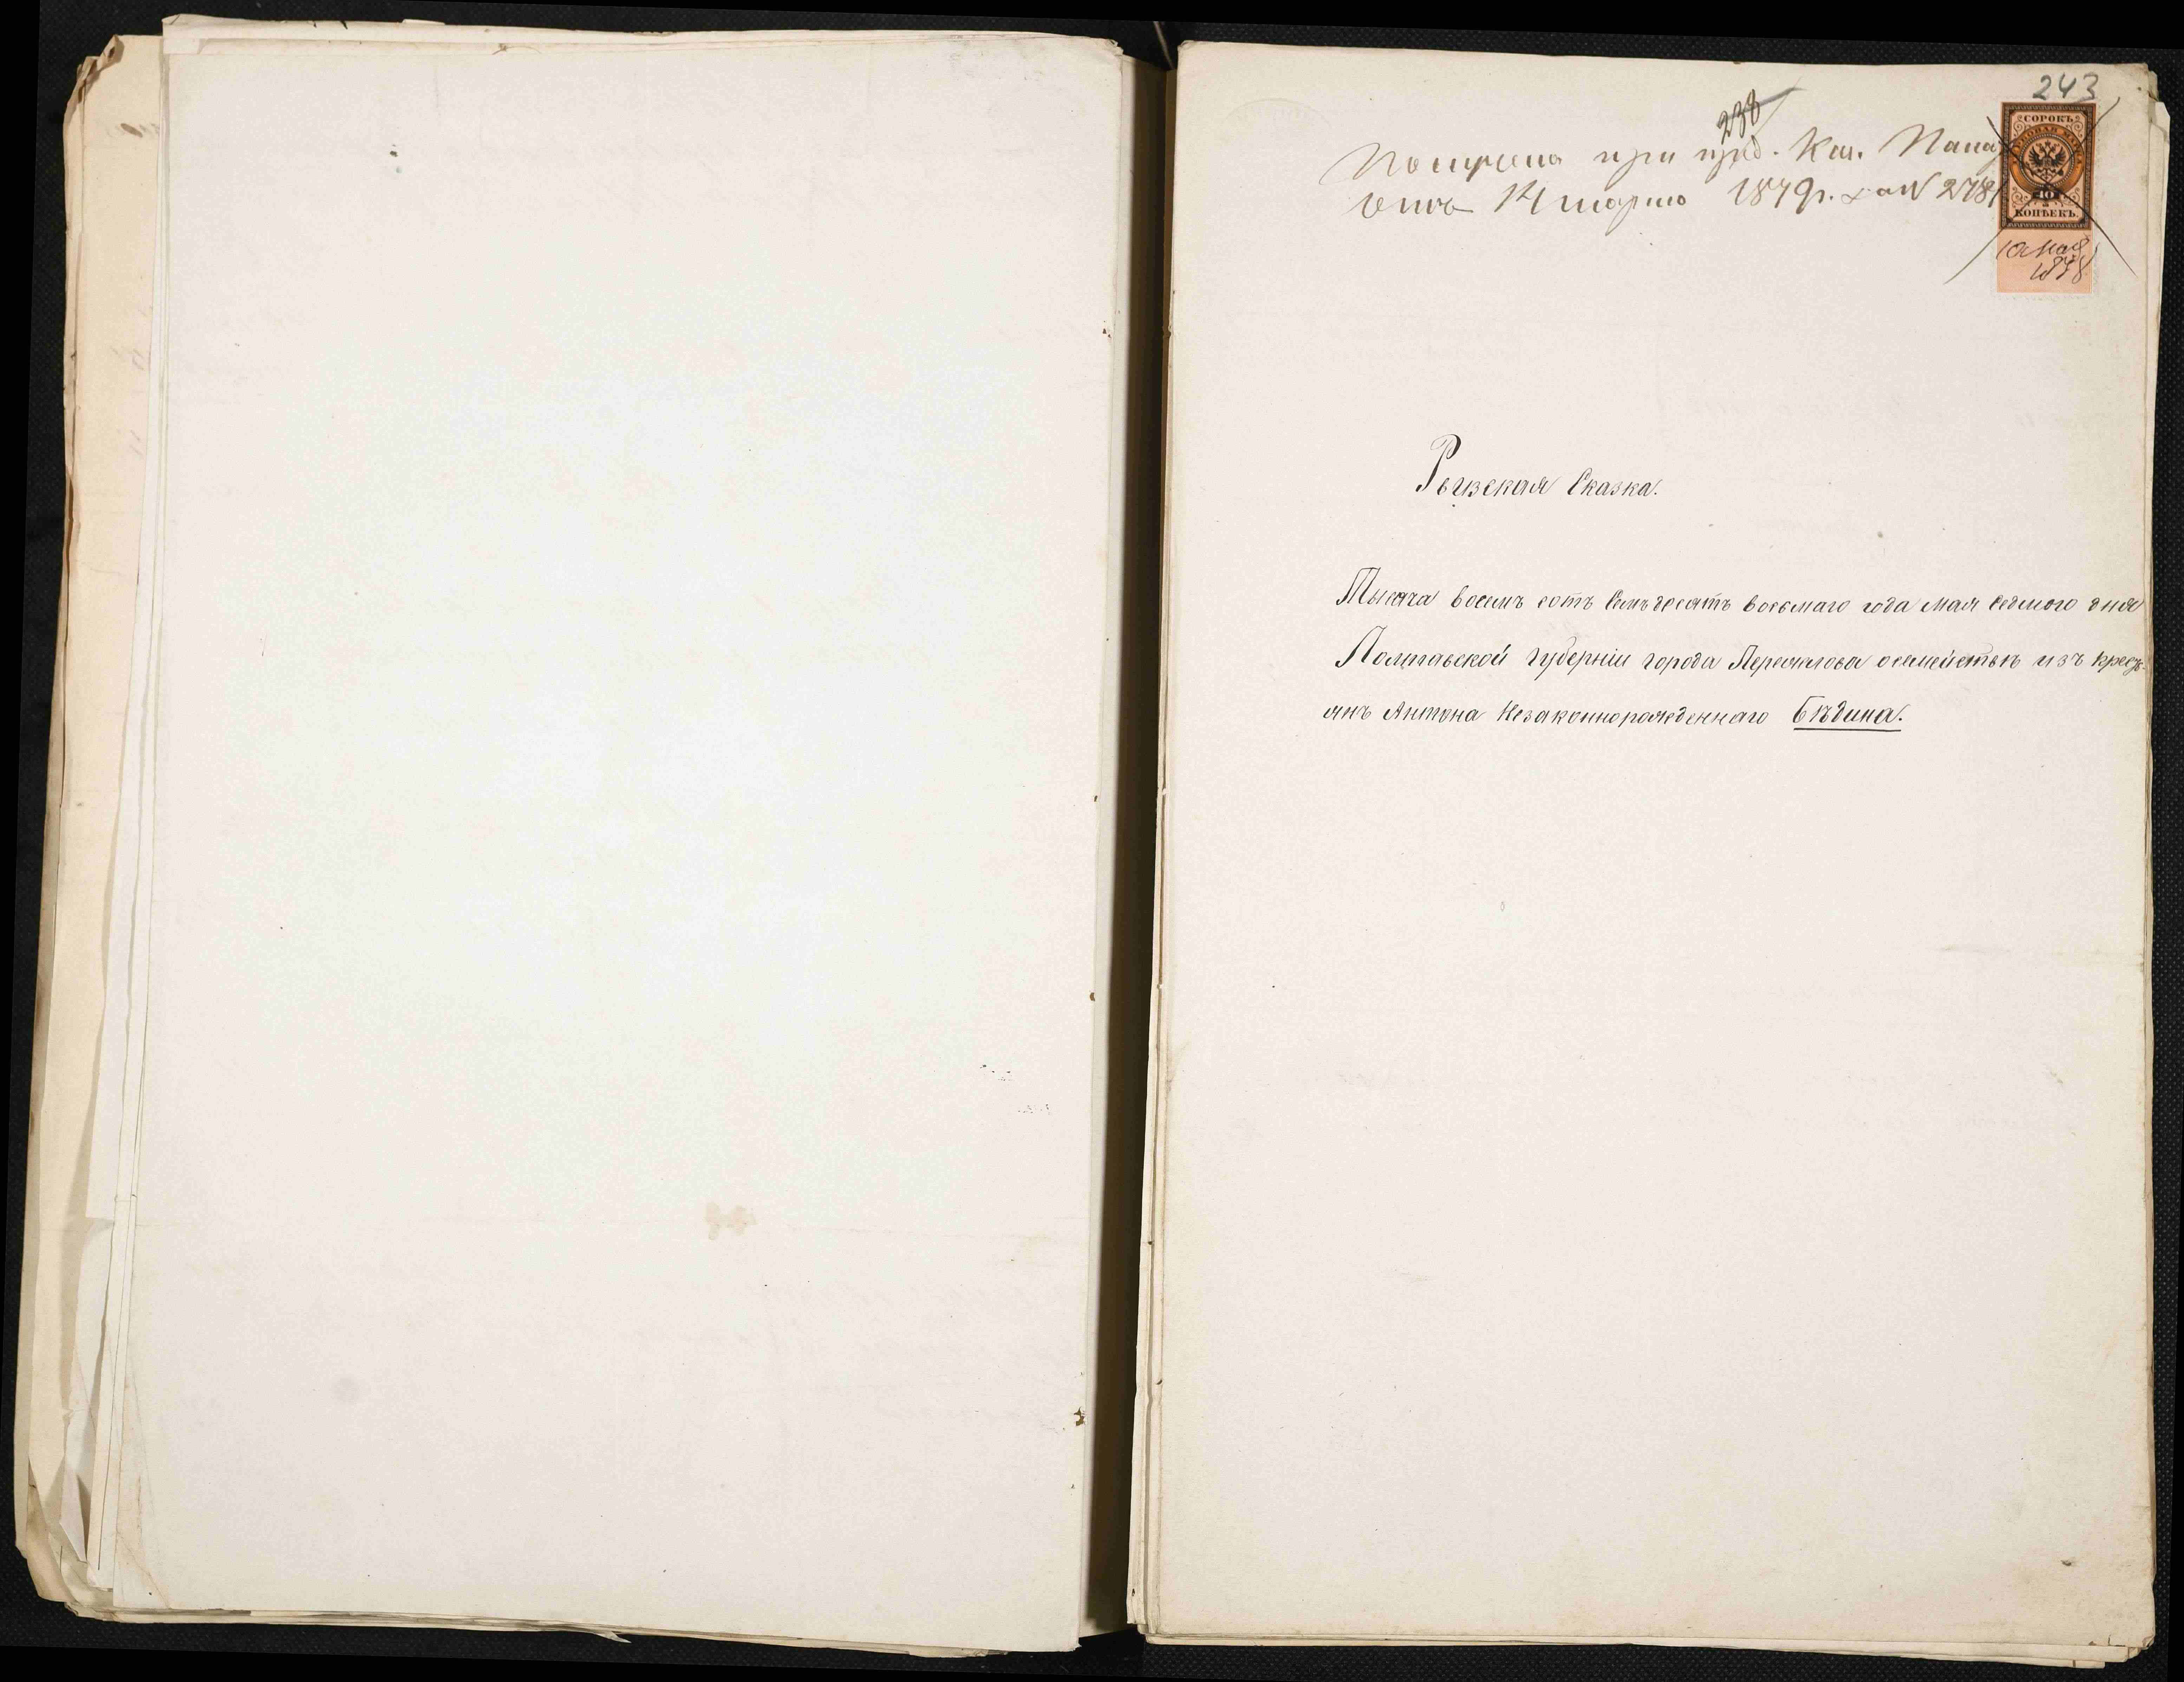 243
238
Получена при пред. Каз. Пала
14 марта 1879 г. за N 2781
СОРОКЪ
ГЕРБОВАЯ МАРКА
40
КОПѢЕКЪ.
10 Мая
1878
Ревизская Сказка.
Тысяча восемъ сотъ Семъдесятъ восьмаго года Мая седмого дня
Полтавской губерніи города Переяслова о семействѣ изъ крестъ-
янъ Антона Незаконнорожденнаго Бѣдина.